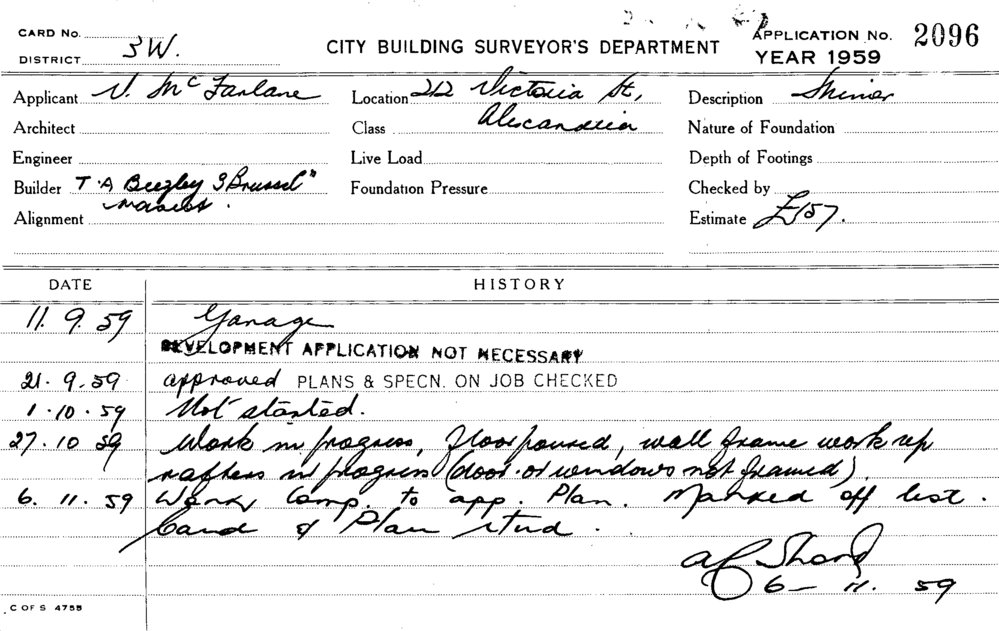 CARD No.
DISTRICT 3W.
CITY BUILDING SURVEYOR'S DEPARTMENT
APPLICATION No. 2096
YEAR 1959
Applicant V. McFarlane
Location 212 Victoria St,
Description Minor
Architect
Class Alexandria
Nature of Foundation
Engineer
Live Load
Depth of Footings
Builder T.A Beezley 3 Brussel"
Foundation Pressure
Checked by
Alignment
Estimate £157.
DATE HISTORY
11. 9. 59 Garage
DEVELOPMENT APPLICATION NOT NECESSARY
21. 9. 59 approved PLANS & SPECN. ON JOB CHECKED
1. 10. 59 Not started.
27. 10 59 Work in progress, floor poured, wall frame work up
rafters in progress (door or windows not framed)
6. 11. 59 Work comp. to app. Plan. Marked off list.
Card & Plan rtnd.
6 - 11. 59
C OF S 4755